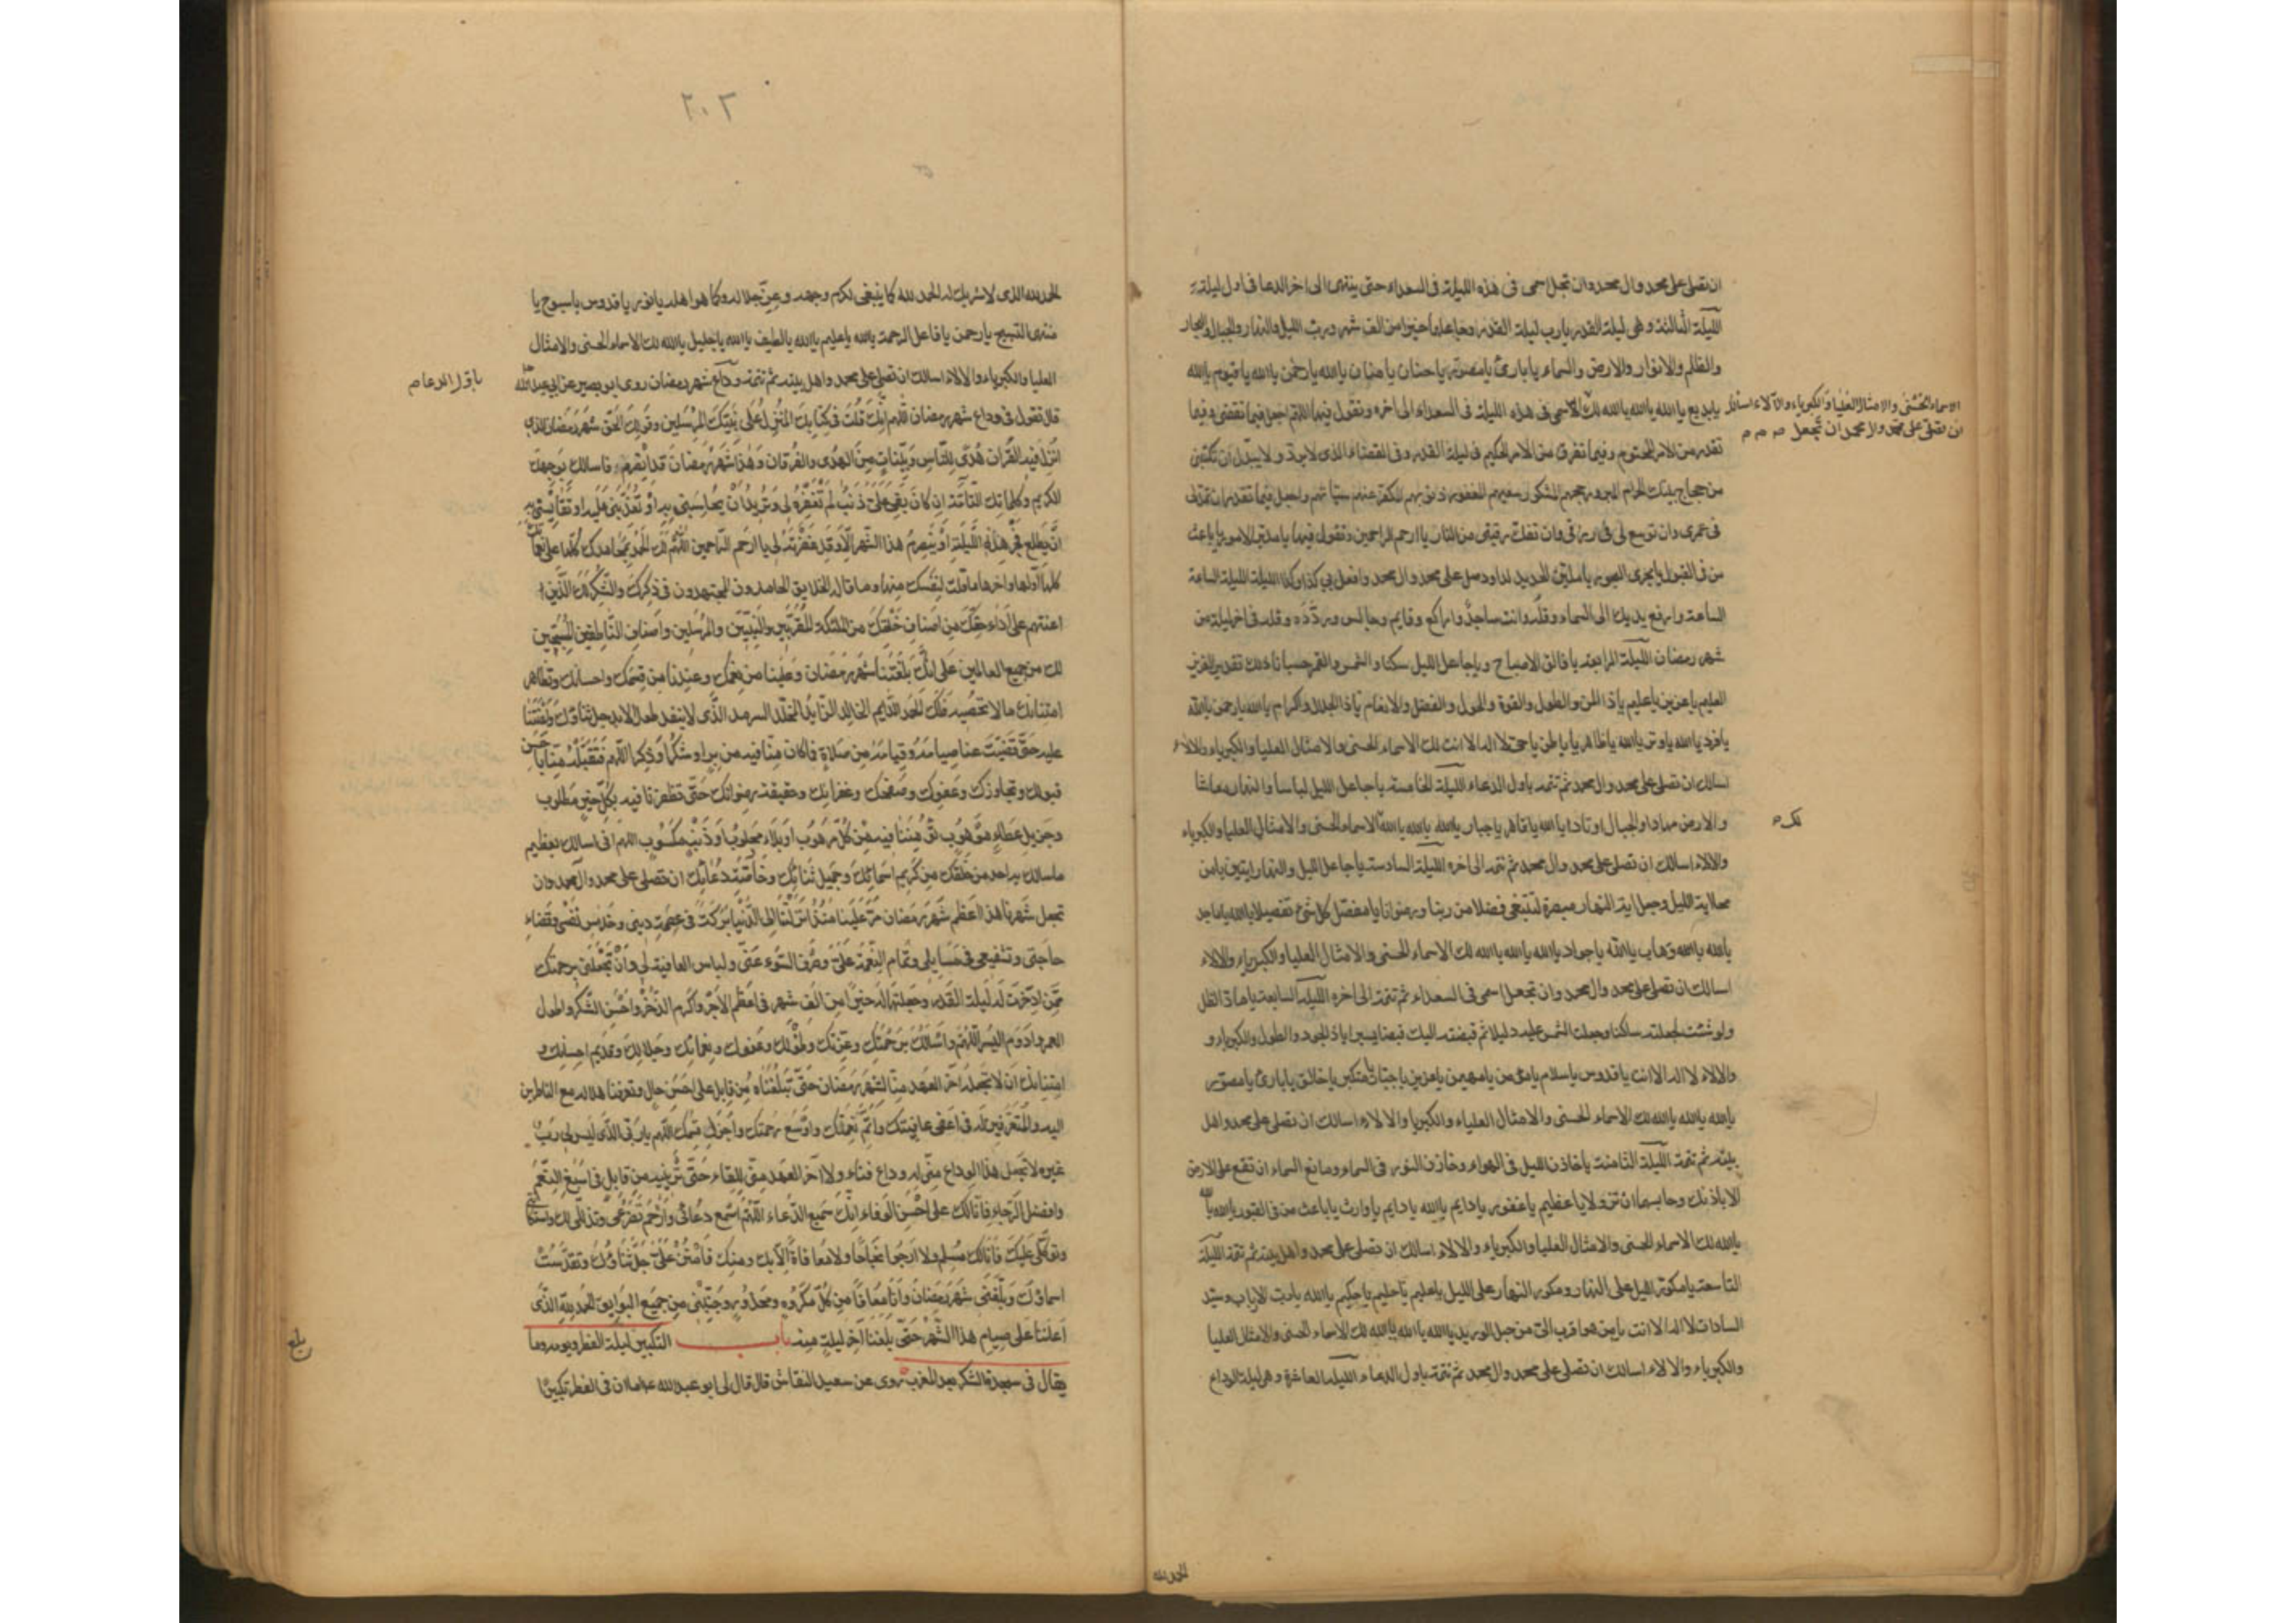 ان تصلى على محمد وال محمد وان تجعل اسمى فى هذه الليلة فى السعداء حتى ينتهى الى اخر الدعا فى اول ليلة
الليلة الثالثة وهى ليلة القدر يا رب ليلة القدر وجاعلها خيرا من الف شهر ورب الليل والنهار والجبال والبحار
والظلم والانوار والارض والسماء يا بارئ يا مصور يا حنان يا منان يا الله يا رحمن يا الله يا قيوم يا الله
يا بديع يا الله يا الله يا الله لك اسمى فى هذه الليلة فى السعداء الى اخره وتقول فيها اللهم اجعل فيما تقضى وفيما
الاسماء الحسنى والامثال العليا والكبرياء والآلاء اسئلك
ان تصلى على محمد وال محمد ان تجعل
تقدر من الامر المحتوم وفيما تفرق من الامر الحكيم فى ليلة القدر وفى القضاء الذى لا يرد ولا يبدل ان تكتبنى
من حجاج بيتك الحرام المبرور حجهم المشكور سعيهم المغفور ذنوبهم المكفر عنهم سيئاتهم واجعل فيما تقدر ان تمد لى
فى عمرى وان توسع لى فى رزقى وان تفك رقبتى من النار يا ارحم الراحمين وتقول فيها يا مدبر الامور يا باعث
من فى القبور يا مجرى البحور يا ملين الحديد لداود صل على محمد وال محمد وافعل بى كذا وكذا الليلة الليلة الساعة
الساعة وارفع يديك الى السماء وقله وانت ساجد وراكع وقايم وجالس وردده وقله فى اخر ليلة من
شهر رمضان الليلة الرابعة يا فالق الاصباح ويا جاعل الليل سكنا والشمس والقمر حسبانا ذلك تقدير العزيز
العليم يا عزيز يا عليم يا ذا المن والطول والقوة والحول والفضل والانعام يا ذا الجلال والاكرام يا الله يا رحمن يا الله
يا فرد يا الله يا وتر يا الله يا ظاهر يا باطن يا حى لا اله الا انت لك الاسماء الحسنى والامثال العليا والكبرياء والالاء
اسالك ان تصلى على محمد وال محمد ثم تتمه باول الدعاء الليلة الخامسة يا جاعل الليل لباسا والنهار معاشا
والارض مهادا والجبال اوتادا يا الله يا قاهر يا جبار يا الله يا الله يا الله الاسماء الحسنى والامثال العليا والكبرياء
لك
والالاء اسالك ان تصلى على محمد وال محمد ثم تتمه الى اخره الليلة السادسة يا جاعل الليل والنهار ايتين يا من
محا اية الليل وجعل اية النهار مبصرة لتبتغى فضلا من ربنا ورضوانا يا مفصل كل شئ تفصيلا يا الله يا ماجد
يا الله يا الله وهاب يا الله يا جواد يا الله يا الله يا الله لك الاسماء الحسنى والامثال العليا والكبرياء والالاء
اسالك ان تصلى على محمد وال محمد وان تجعل اسمى فى السعداء ثم تتمه الى اخره الليلة السابعة يا ماد الظل
ولو شئت لجعلته ساكنا وجعلت الشمس عليه دليلا ثم قبضته اليك قبضا يسيرا يا ذا الجود والطول والكبرياء و
والالاء لا اله الا انت يا قدوس يا سلام يا مؤمن يا مهيمن يا عزيز يا جبار يا متكبر يا خالق يا بارئ يا مصور
يا الله يا الله يا الله لك الاسماء الحسنى والامثال العلياء والكبريا والالاء اسالك ان تصلى على محمد واهل
بيته ثم تتمه الليلة الثامنة يا خازن الليل فى الهواء وخازن النور فى السماء ومانع السماء ان تقع على الارض
الا باذنك وحابسهما ان تزولا يا عظيم يا غفور يا دايم يا الله يا دايم يا وارث يا باعث من فى القبور يا الله يا الله
يا الله لك الاسماء الحسنى والامثال العليا والكبرياء والالاء اسالك ان تصلى على محمد واهل بيته ثم تتمه الليلة
التاسعة يا مكور الليل على النهار ومكور النهار على الليل يا عليم يا حليم يا حكيم يا الله يا رب الارباب وسيد
السادات لا اله الا انت يا من هو اقرب الى من حبل الوريد يا الله يا الله يا الله لك الاسماء الحسنى والامثال العليا
والكبرياء والالاء اسالك ان تصلى على محمد وال محمد ثم تتمه باول الدعاء الليلة العاشرة وهى ليلة الوداع
الحمد لله
٢٠٢
الحمد لله الذى لا شريك له الحمد لله كما ينبغى لكرم وجهه وعز جلاله وكما هو اهله يا نور يا قدوس يا سبوح يا
منتهى التسبيح يا رحمن يا فاعل الرحمة يا الله يا عليم يا الله يا لطيف يا الله يا جليل يا الله لك الاسماء الحسنى والامثال
العليا والكبرياء والالاء اسالك ان تصلى على محمد واهل بيته ثم تتمه وداع شهر رمضان روى ابو بصير عن ابى عبد الله
باول الدعا
قال تقول فى وداع شهر رمضان اللهم انك قلت فى كتابك المنزل على نبيك المرسلين وقولك الحق شهر رمضان الذى
انزل فيه القران هدى للناس وبينات من الهدى والفرقان وهذا شهر رمضان قد انصرم فاسالك بوجهك
الكريم وكلماتك التامة ان كان بقى على ذنب لم تغفره لى وتريد ان تحاسبنى به او تعذبنى عليه او تقايسنى به
ان يطلع فجر هذه الليلة او ينصرم هذا الشهر الا وقد غفرته لى يا ارحم الراحمين اللهم لك الحمد بمحامدك كلها على نعمائك
كلها اولها واخرها ما قلت لنفسك منها وما قال الخلايق الحامدون المجتهدون فى ذكرك والشكر لك الذين
اعنتهم على اداء حقك من اصناف خلقك من الملئكة المقربين والنبيين والمرسلين واصناف الناطقين المسبحين
لك من جميع العالمين على انك بلغتنا شهر رمضان وعلينا من نعمك وعندنا من قسمك واحسانك وتظاهر
امتنانك ما لا نحصيه فلك الحمد الدايم الخالد الزايد المخلد السرمد الذى لا ينفد طول الابد جل ثناؤك واعنتنا
عليه حتى قضيت عنا صيامه وقيامه من صلاة فما كان منا فيه من بر او شكر او ذكر اللهم فتقبله منا باحسن
قبولك وتجاوزك وعفوك وصفحك وغفرانك وحقيقة رضوانك حتى تظفرنا فيه بكل خير مطلوب
وجزيل عطاء موهوب تؤمننا فيه من كل مرهوب او بلاء مجلوب او ذنب مكسوب اللهم انى اسالك بعظيم
ما سالك به احد من خلقك من كريم اسمائك وجميل ثنائك وخاصة دعائك ان تصلى على محمد وال محمد وان
تجعل شهرنا هذا اعظم شهر رمضان مر علينا منذ انزلتنا الى الدنيا بركة فى عصمة دينى وخلاص نفسى وقضاء
حاجتى وتشفيعى فى مسايلى وتمام النعمة على وصرف السوء عنى ولباس العافية لى وان تجعلنى برحمتك
ممن ادخرت له ليلة القدر وجعلتها له خيرا من الف شهر فى اعظم الاجر واكرم الذخر واحسن الشكر واطول
العمر وادوم اليسر اللهم واسالك برحمتك وعزتك وطولك وعفوك ونعمائك وجلالك وقديم احسانك و
امتنانك ان لا تجعله اخر العهد منا لشهر رمضان حتى تبلغناه من قابل على احسن حال وتعرفنا هلاله مع الناظرين
اليه والمتعرفين له فى اعفى عافيتك واتم نعمتك واوسع رحمتك واجزل قسمك اللهم يا ربى الذى ليس لى رب
غيره لا تجعل هذا الوداع منى له وداع فناء ولا اخر العهد منى للقاء حتى ترينيه من قابل فى اسبغ النعم
وافضل الرجاء فانا لك على احسن الوفاء انك سميع الدعاء اللهم اسمع دعائى وارحم تضرعى وتذللى لك واستكانتى
وتوكلى عليك فانا لك مسلم ولا ارجوا نجاحا ولا معافاة الا بك ومنك فامنن على جل ثناؤك وتقدست
اسماؤك وبلغنى شهر رمضان وانا معافا من كل مكروه ومحذور وجنبنى من جميع البوايق الحمد لله الذى
اعاننا على صيام هذا الشهر حتى بلغنا اخر ليلة منه باب التكبير ليلة الفطر ويومه وما
بلغ
يقال فى سجدة الشكر بعد المغرب روى عن سعيد النقاش قال قال لى ابو عبد الله اما ان فى الفطر تكبيرا